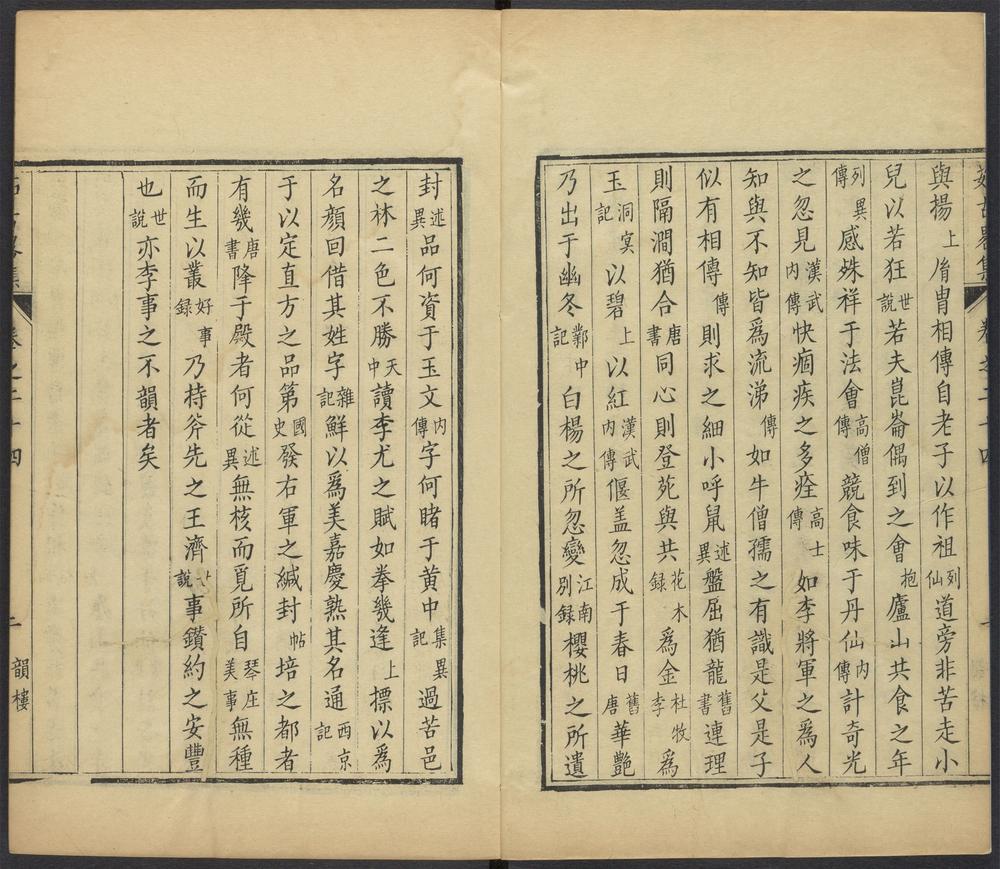 茹古畧集 卷之二十四
與楊上胄冑相傳自老子以作祖列仙道旁非苦走小
兒以若狂世說若夫崑崙偶到之會抱廬山共食之年
列異傳感殊祥于法會高僧傳競食味于丹仙內傳計奇光
之忽見漢武內傳快痼疾之多痊高士傳如李將軍之爲人
知與不知皆爲流涕傳如牛僧孺之有識是父是子
似有相傳傳則求之細小呼鼠述異盤屈猶龍舊書連理
則隔澗猶合唐書同心則登苑與共花木錄爲金杜牧李爲
玉洞冥記以碧上以紅漢武內傳偃盖忽成于春日舊唐華艷
乃出于幽冬鄴中記白楊之所忽變江南別録櫻桃之所遺
封述異品何資于玉文內傳字何睹于黄中集異記過苦邑
之林二色不勝天中讀李尤之賦如拳幾逢上摽以爲
名顔回借其姓字雜記鮮以爲美嘉慶熟其名通西京記
于以定直方之品第國史發右軍之緘封帖培之都者
有幾唐書降于殿者何從述異無核而覓所自琴庄美事無種
而生以叢好事録乃持斧先之王濟世說事鑽約之安豐
也世說亦李事之不韻者矣
卷之二十四 二 韻樓